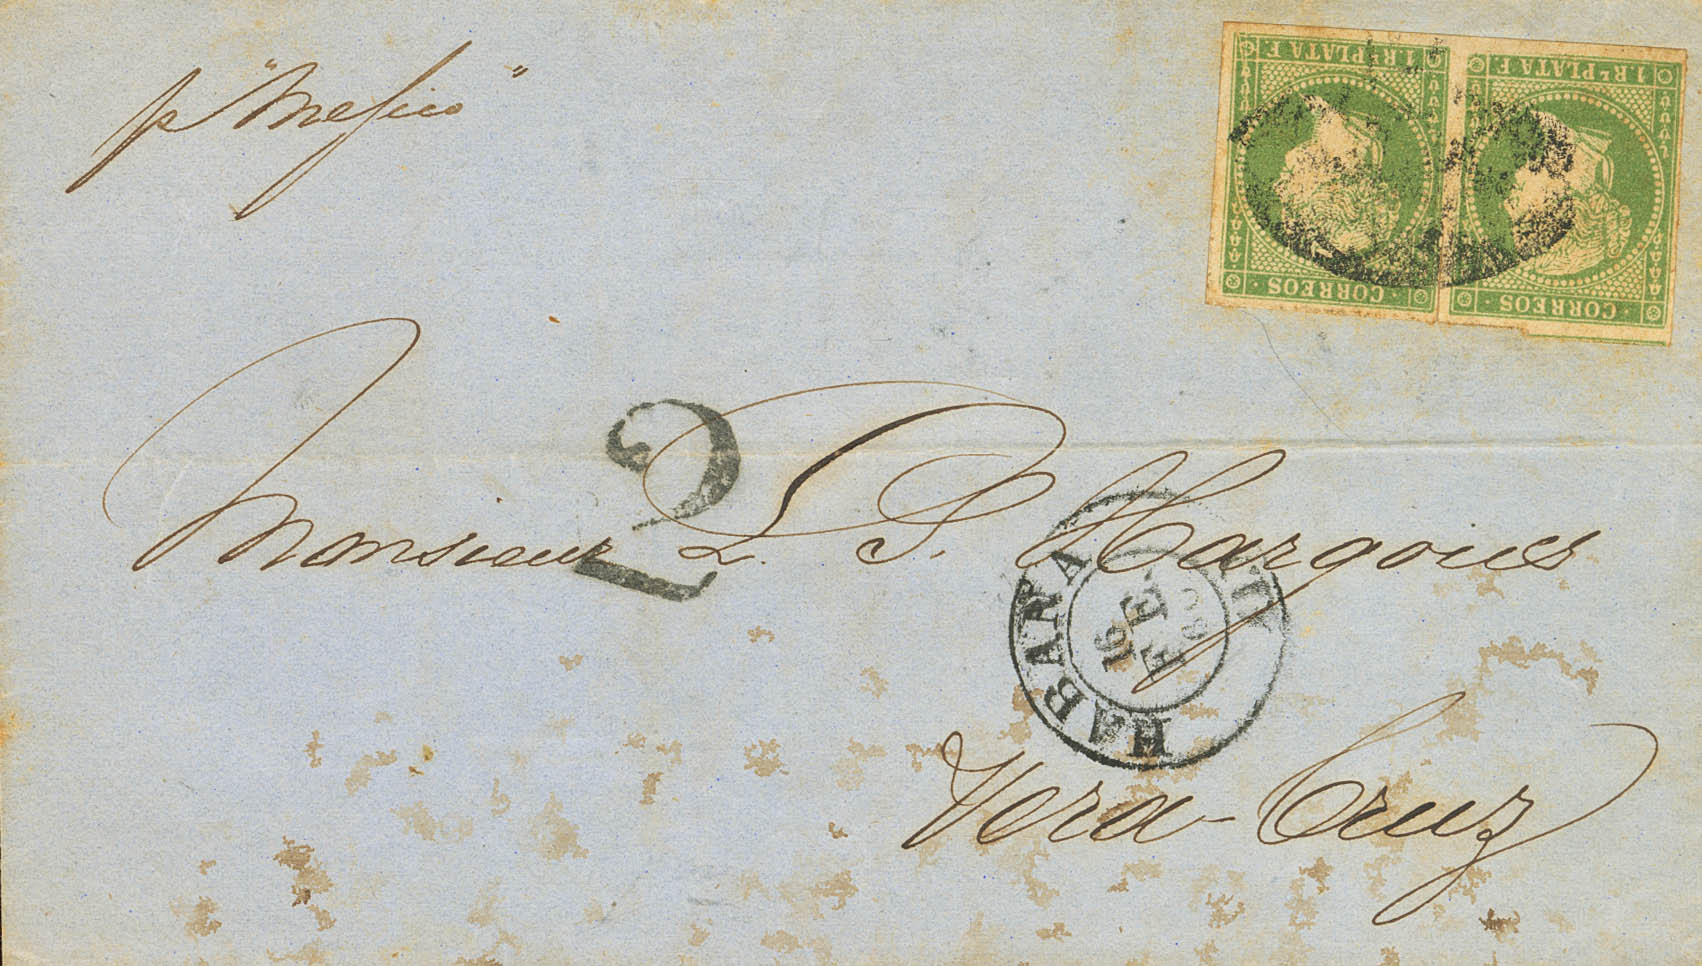 p "Mejico"
1 RL PLATA F.
CORREOS
1 RL PLATA F.
CORREOS
2
Monsieur L. P. Hargous
HABANA
16
FE
Vera-Cruz